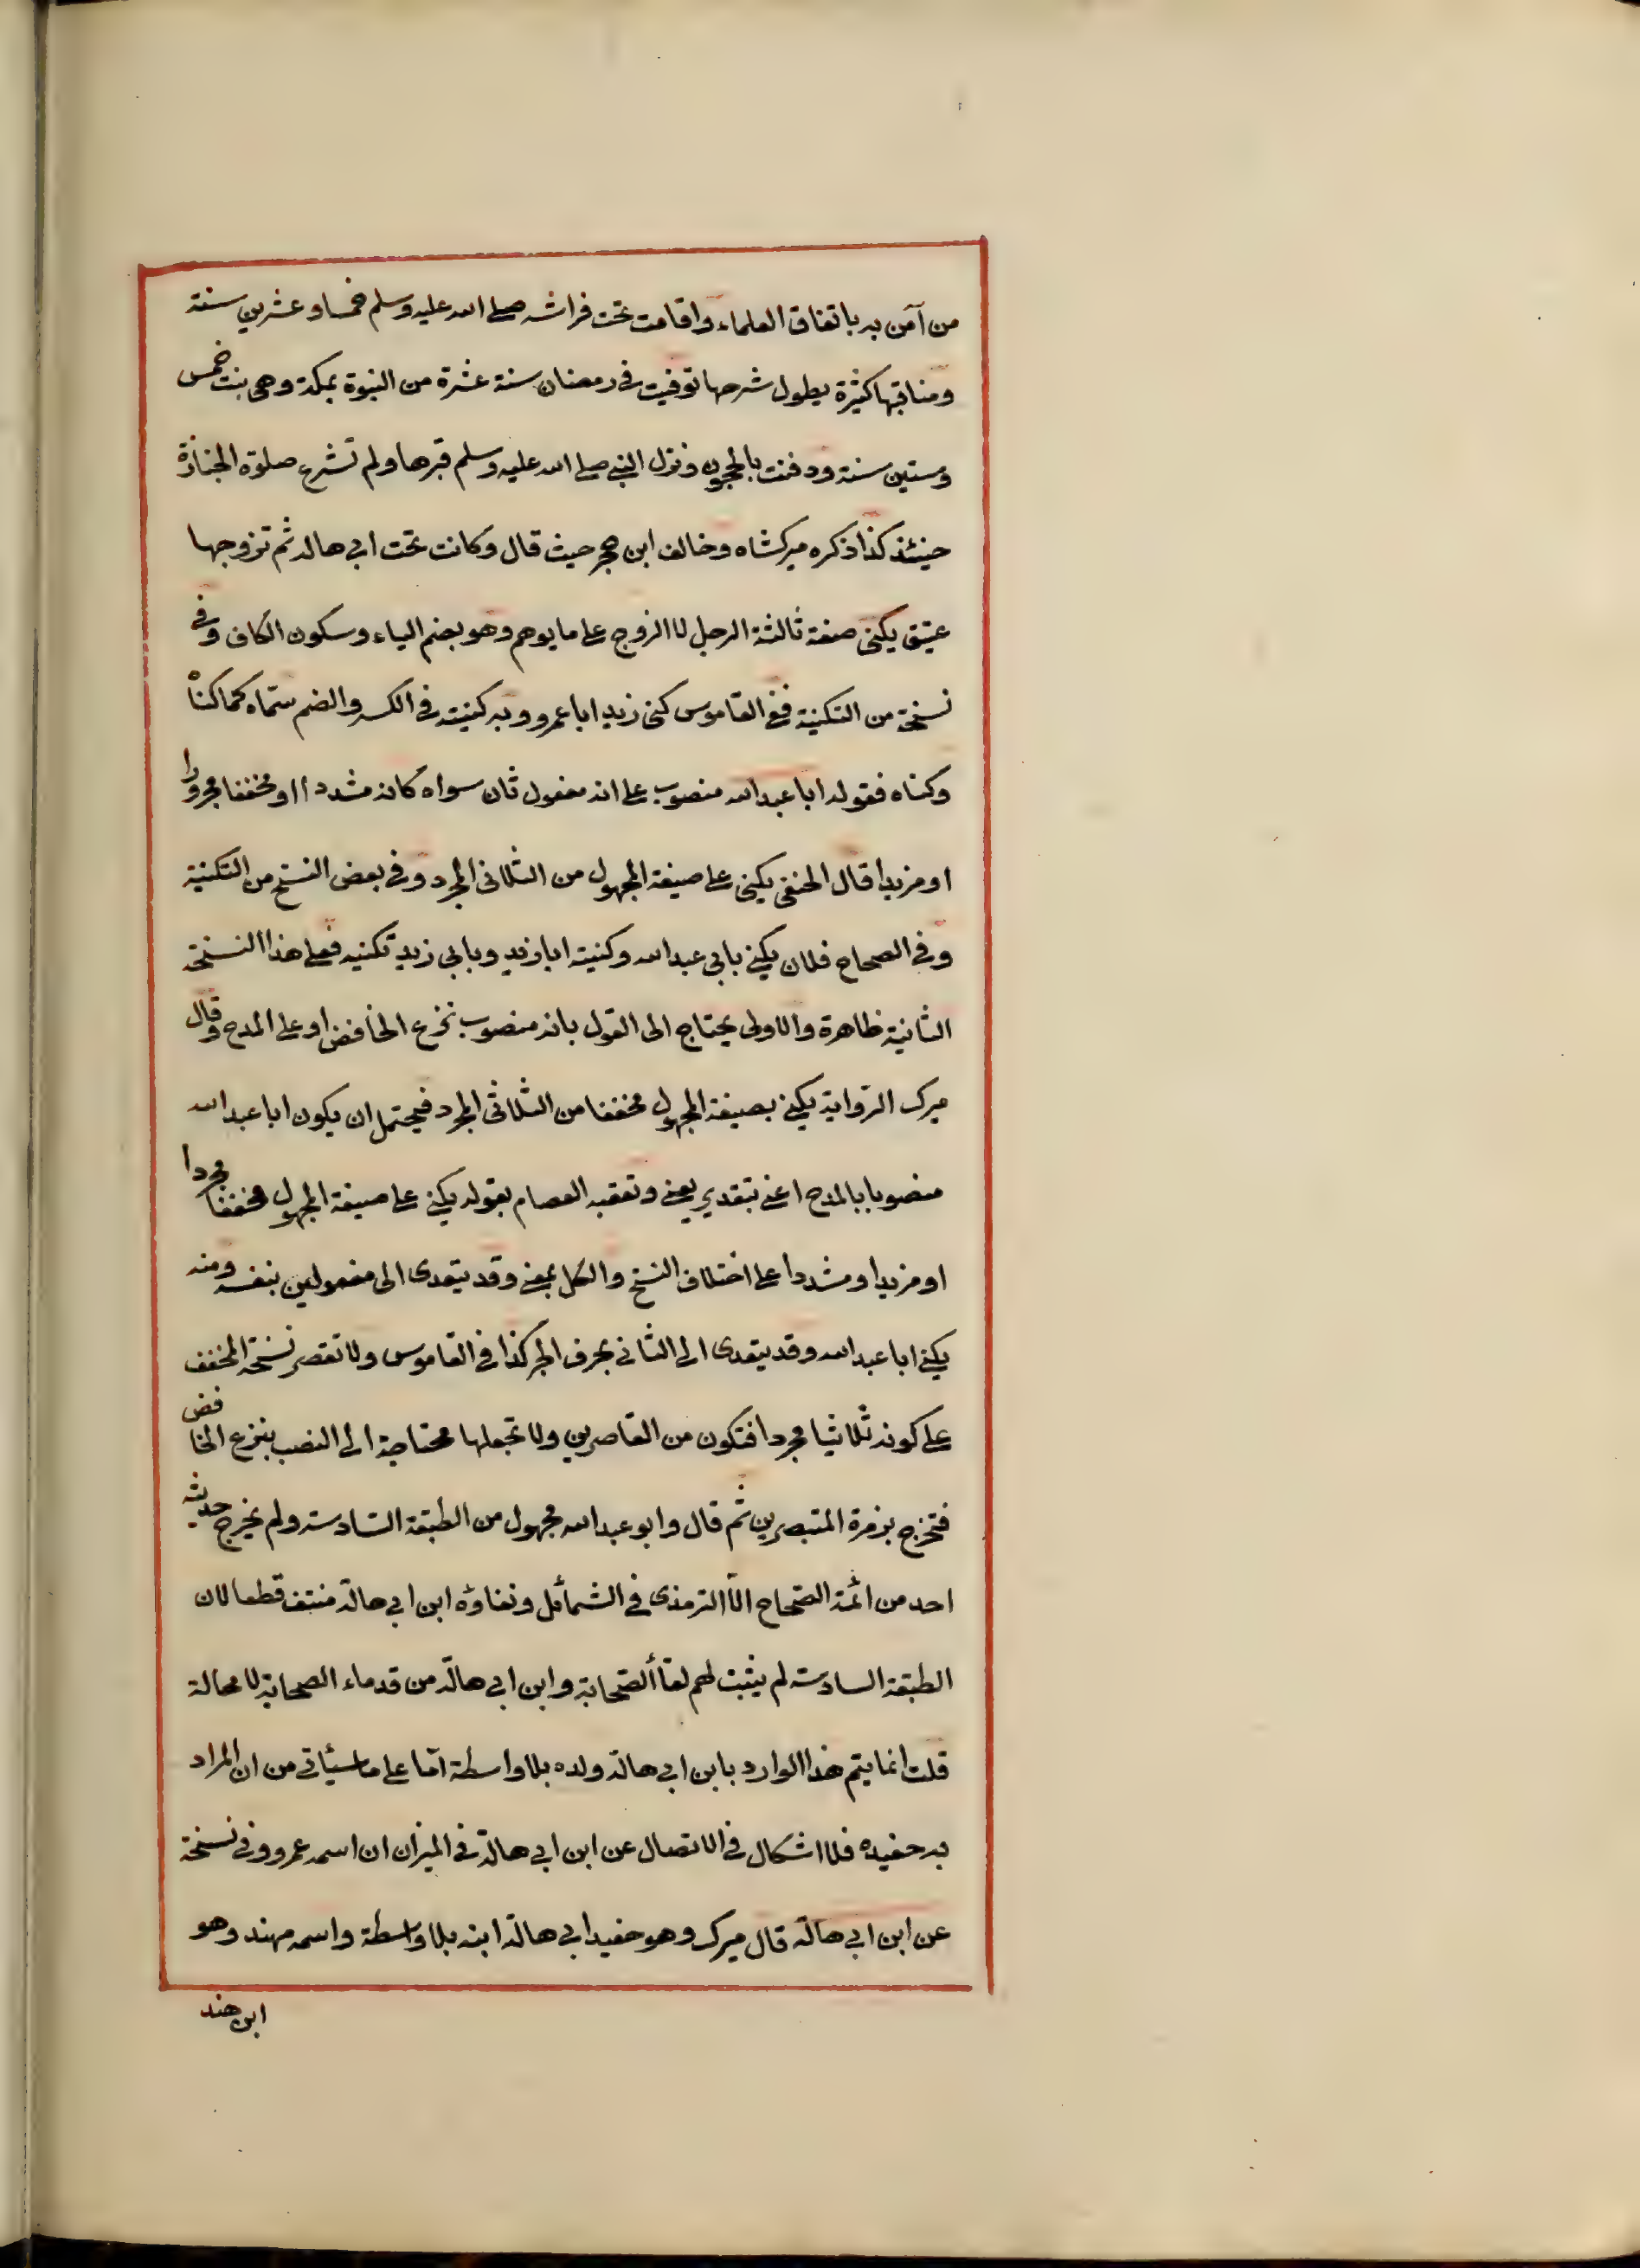 من آمن به باتفاق العلماء واقامت تحت فراشه صلى الله عليه وسلم خمسا وعشرين سنة
ومناقبها كثيرة يطول شرحها توفيت في رمضان سنة عشرة من النبوة بمكة وهي بنت خمس
وستين سنة ودفنت بالحجون ونزل النبي صلى الله عليه وسلم قبرها ولم تشرع صلوة الجنازة
حينئذ كذا ذكره ميركشاه وخالف ابن حجر حيث قال وكانت تحت ابي هاله ثم تزوجها
عتيق يكنى صفة ثالثة الرجل لا الزوج على ما يوهم وهو بضم الياء وسكون الكاف وفي
نسخة من التكنية ففي القاموس كنى زيد ابا عمرو وبه كنية في الكسر والضم سمّاه كما كناه
وكناه فقوله ابا عبد الله منصوب على انه مفعول ثان سواه كانه مشددا او مخففا مجرورا
او مزيدا قال الحنفي يكنى على صيغة المجهول من الثلاثي المجرد وفي بعض النسخ من التكنية
وفي الصحاح فلان يكنى بابي عبد الله وكنيته ابا زيد وبابي زيد تكنيه فعلى هذا النسخة
الثانية ظاهرة والاولى يحتاج الى القول بانه منصوب بنزع الخافض او على المدح وقال
ميرك الرواية يكنى بصيغة المجهول مخففا من الثلاثي المجرد فيحتمل ان يكون ابا عبد الله
منصوبا بالمدح اعني بتقدير يعني وتعقبه العصام بقوله يكنى على صيغة المجهول مخففا مجردا
او مزيدا ومشددا على اختلاف النسخ والكل بمعنى وقد يتعدى الى مفعولين بنفسه ومنه
يكنى ابا عبد الله وقد يتعدى الى الثاني بحرف الجر كذا في القاموس ولا تقصر نسخة المخفف
على كونه ثلاثيا مجردا فتكون من القاصرين ولا تجعلها محتاجة الى النصب بنزع الخافض
فتخرج بزمرة المتبصرين ثم قال وابو عبد الله مجهول من الطبقة السادسة ولم يخرج حديثه
احد من ائمة الصحاح الا الترمذى في الشمائل ونفاؤه ابن ابي هالة منتف قطعا لان
الطبقة السادسة لم يثبت لهم لقأ الصحابة وابن ابي هالة من قدماء الصحابة لا محالة
قلت انما يتم هذا الوارد بابن ابي هالة ولده بلا واسطة اما على ما سيأتي من ان المراد
به حفيده فلا اشكال في الاتصال عن ابن ابي هالة في الميزان ان اسمه عمرو وفي نسخة
عن ابن ابي هالة قال ميرك وهو حفيد ابي هالة ابنه بلا واسطة واسمه مهند وهو
ابن هند